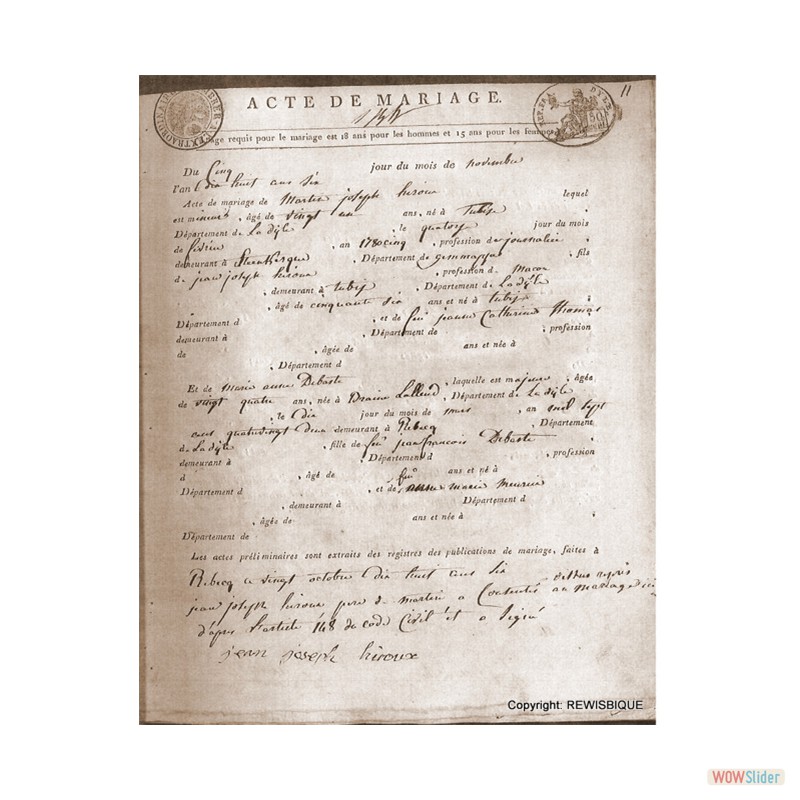 11
ACTE DE MARIAGE.
age requis pour le mariage est 18 ans pour les hommes et 15 ans pour les femmes
Du Cinq jour du mois de novembre
l'an dix huit cens six
Acte de mariage de Martin joseph hiroux lequel
est mineur, âgé de vingt un ans, né à tubise
Département de La dyle, le quatorze jour du mois
de fevrier, an 1780cinq, profession de journalier
demeurant à Steenkerque, Département de gemmappe, fils
de jean joseph hiroux, profession de Macon
, demeurant à tubise, Département de Ladyle
, âgé de cinquante six ans et né à tubise
Département d, et de feu jeanne Catherine Thomas
demeurant à, Département de, profession
de, âgée de ans et née à
, Département d
Et de Marie anne Debaste, laquelle est majeure, âgée
de vingt quatre ans, née à Braine Lalleud, Département de La dyle
, le dix jour du mois de mars, an mil sept
cens quatrevingt deux demeurant à Rebecq, Département
de La dyle, fille de feu jean francois Debaste
demeurant à, Département d, profession
d, âgé de ans et né à
Département d, et de feu anne marie meurice
, demeurant à Département d
, âgée de ans et née à
Département de
Les actes préliminaires sont extraits des registres des publications de mariage, faites à
Rebecq ce vingt octobre dix huit cens six
jean joseph hiroux pere de martin a Consenti au mariage
d'apres l'article 148 du code Civil et a signé
jean joseph hiroux
Copyright: REWISBIQUE
WOWSlider